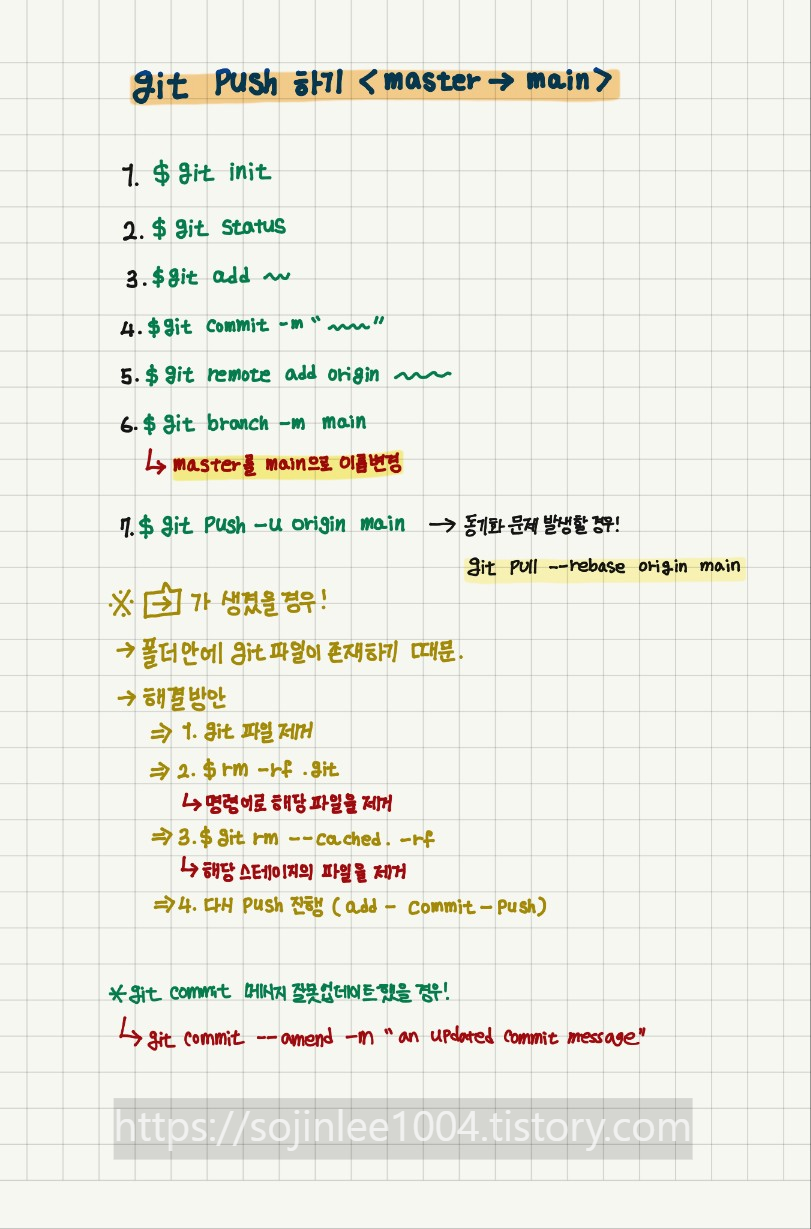 git Push 하기 <master → main>
1. $ git init
2. $ git status
3. $ git add ~~
4. $ git commit -m “~~~~”
5. $ git remote add origin ~~~~
6. $ git branch -m main
↳ master를 main으로 이름변경
7. $ git Push -u origin main → 동기화 문제 발생할 경우!
git pull --rebase origin main
※ → 가 생겼을 경우!
→ 폴더 안에 git 파일이 존재하기 때문.
→ 해결방안
⇒ 1. git 파일 제거
⇒ 2. $ rm -rf .git
↳ 명령어로 해당 파일을 제거
⇒ 3. $ git rm --cached . -rf
↳ 해당 스테이지의 파일을 제거
⇒ 4. 다시 Push 진행 (add - commit - Push)
* git commit 메시지 잘못 업데이트 했을 경우!
↳ git commit --amend -m “an updated commit message”
https://sojinlee1004.tistory.com